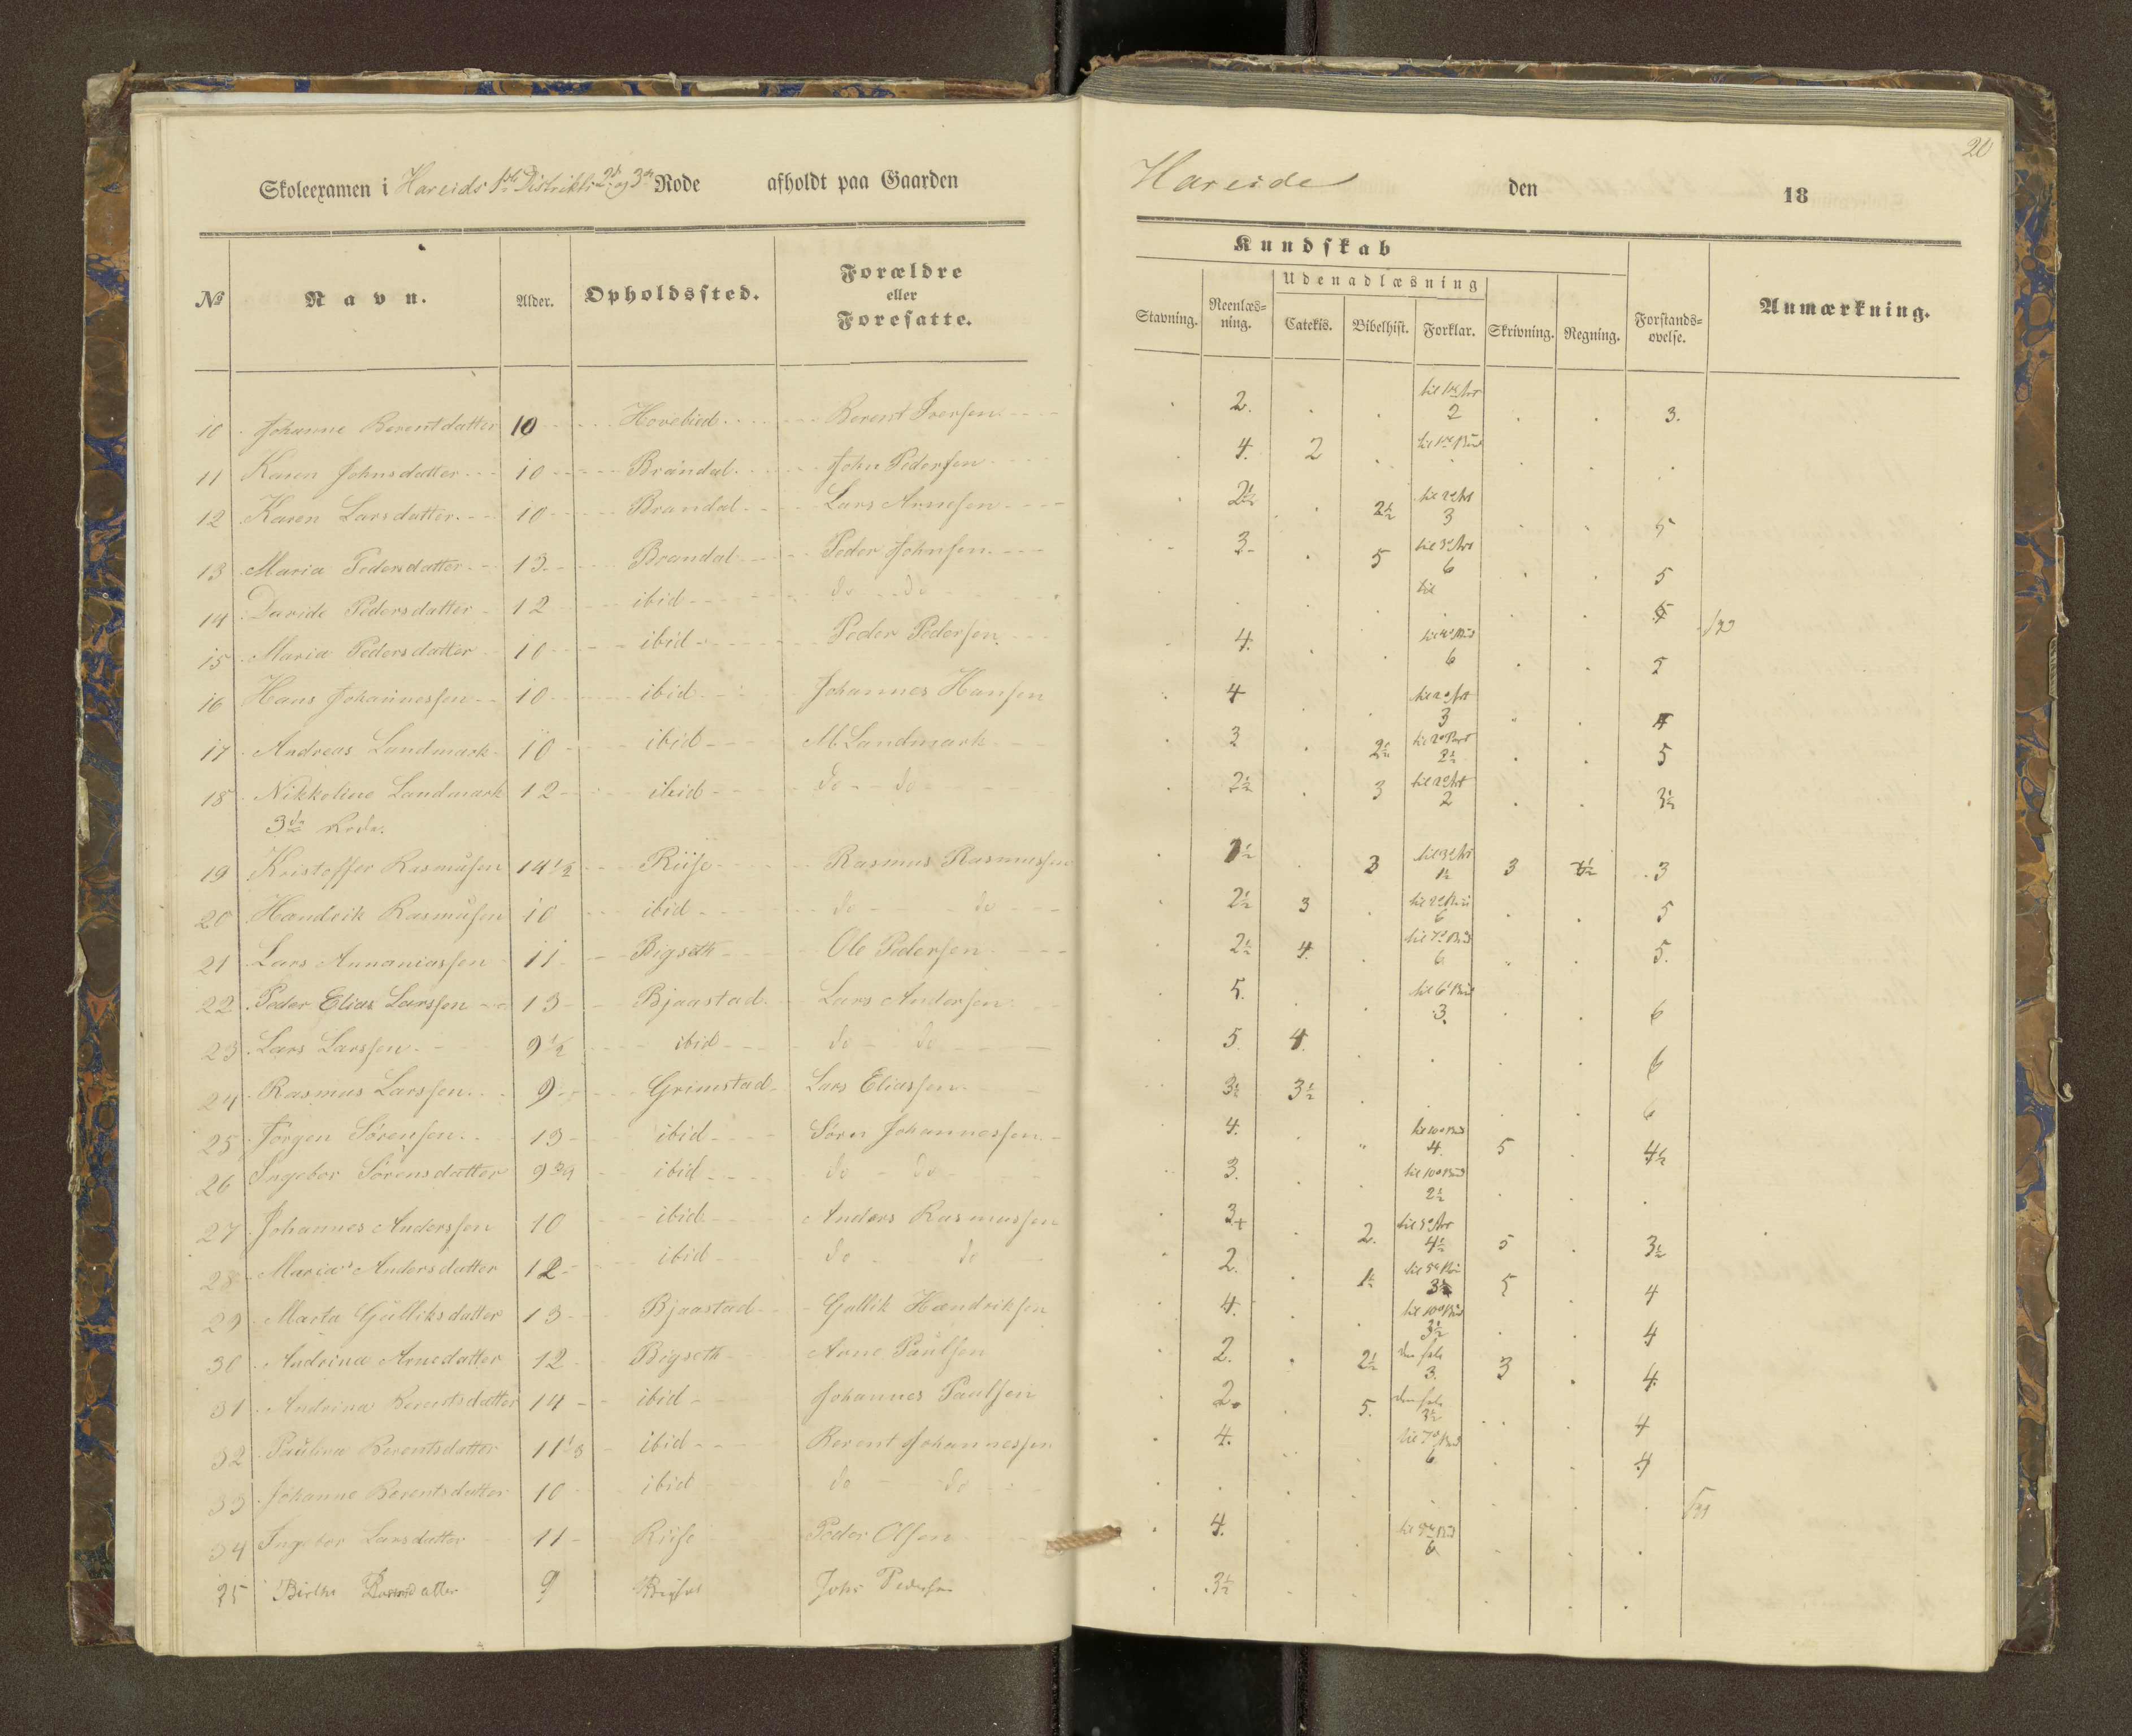 20
Skoleexamen i Hareids 1ste Distrikts 2d og 3de Rode afholdt paa Gaarden Hareide den 18
Kundskab
Udenadlæsning
No Navn. Alder. Opholdssted. Forældre eller Foresatte. Stavning. Reenlæsning. Catekis. Bibelhist. Forklar. Skrivning. Regning. Forstandsøvelse. Anmærkning.
10 Johanne Berentdatter 10 Berent Iversen 2. til 1ste Art 2 3.
11 Karen Johnsdatter 10 Brandal John Pedersen 4. 2
12 Karen Larsdatter 10 Brandal Lars Arnesen 2½ 2½ til 2d Art 3 5
13 Maria Pedersdatter 13 Brandal Peder Johnsen 3 5 til 3d Art 6 5
14 Davide Pedersdatter 12 ibid do do til
15 Maria Pedersdatter 10 ibid Peder Pedersen 4. 6 5
16 Hans Johannessen 10 ibid Johannes Hansen 4 til 2d Art 3 4
17 Andreas Landmark 10 ibid M. Landmark 3 2½ 2½ 5
18 Nikkoline Landmark 12 ibid do do 2½ 3 til 2d Art 2 3½
3die Rode.
19 Kristoffer Rasmusen 14½ Riise Rasmus Rasmussen 1½ 3 til 3d Art 1½ 3 3
20 Hendrik Rasmusen 10 ibid do do 2½ 3 6 5
21 Lars Annaniassen 11 Bigseth Ole Pedersen 2½ 4. 6 5.
22 Peder Elias Larssen 13 Bjaastad Lars Andersen 5. 3 6
23 Lars Larssen 9½ ibid do do 5. 4. 6
24 Rasmus Larssen 9 Grimstad Lars Eliassen 3½ 3½ 6
25 Jørgen Sørensen 13 ibid Søren Johannessen 4. 4. 5 4½
26 Ingebor Sørensdatter 9¾ ibid do do 3. 2½
27 Johannes Anderssen 10 ibid Anders Rasmussen 3+ 2. 4½ 5 3½
28 Maria Andersdatter 12 ibid do do 2. 1½ 3½ 5 4
29 Marta Gulliksdatter 13 Bjaastad Gullik Hendriksen 4. 3½ 4
30 Andrina Arnedatter 12 Bigseth Arne Paulsen 2. 2½ 3. 3 4.
31 Andrina Berentsdatter 14 ibid Johannes Paulsen 2. 5. 3½ 4
32 Paulina Berentsdatter 11⅓ ibid Berent Johannessen 4. 6 4
33 Johanne Berentsdatter 10 ibid do do
34 Ingebor Larsdatter 11 Riise Peder Olsen 4. 6
35 Birthe 9 Johs Pedersen 3½